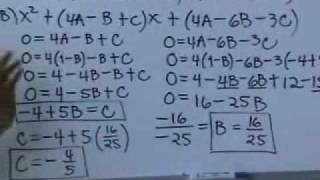 B)x² + (4A-B+C)x + (4A-6B-3C)
0=4A-B+C
0=4(1-B)-B+C
0=4-4B-B+C
0=4-5B+C
-4+5B=C
C=-4+5(16/25)
C=-4/5
0=4A-6B-3C
0=4(1-B)-6B-3(-4+5
0=4-4B-6B+12-15
0=16-25B
-16/-25 = B=16/25